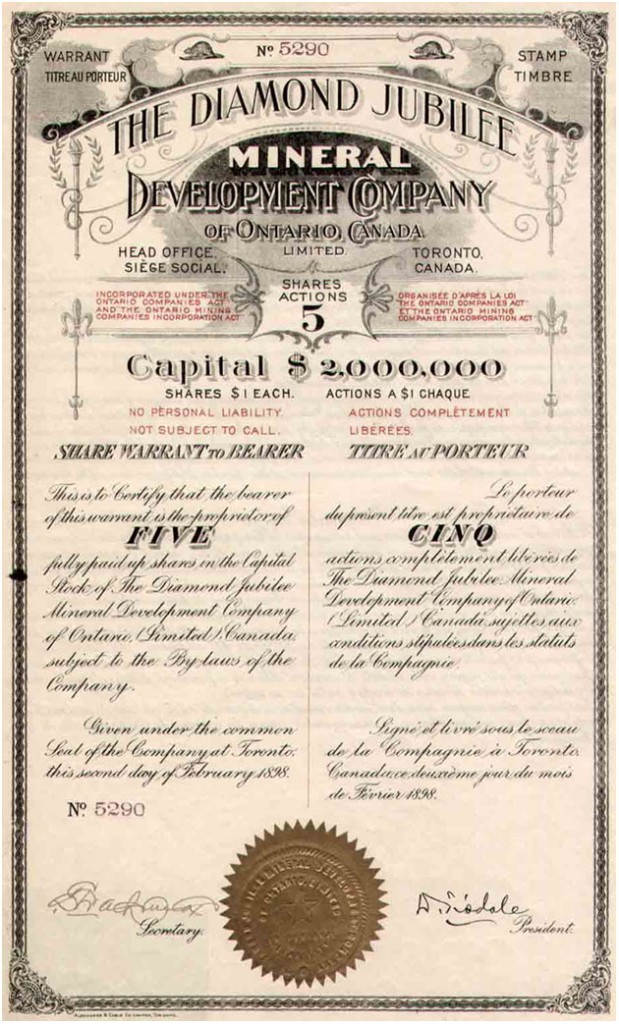 WARRANT
TITRE AU PORTEUR
Nº 5290
STAMP
TIMBRE
THE DIAMOND JUBILEE
MINERAL
DEVELOPMENT COMPANY
OF ONTARIO, CANADA.
LIMITED.
HEAD OFFICE.
SIÈGE SOCIAL.
TORONTO,
CANADA.
SHARES
ACTIONS
5
INCORPORATED UNDER THE
ONTARIO COMPANIES ACT
AND THE ONTARIO MINING
COMPANIES INCORPORATION ACT
ORGANISÉE D'APRÈS LA LOI
THE ONTARIO COMPANIES ACT
ET THE ONTARIO MINING
COMPANIES INCORPORATION ACT
Capital $ 2,000,000
SHARES $1 EACH. ACTIONS A $1 CHAQUE
NO PERSONAL LIABILITY.
NOT SUBJECT TO CALL.
ACTIONS COMPLÈTEMENT
LIBÉRÉES.
SHARE WARRANT TO BEARER
TITRE AU PORTEUR
This is to Certify that the bearer
of this warrant is the proprietor of
FIVE
fully paid up shares in the Capital
Stock of The Diamond Jubilee
Mineral Development Company
of Ontario, (Limited), Canada.
subject to the By-laws of the
Company.
Given under the common
Seal of the Company at Toronto,
this second day of February 1898.
Le porteur
du présent titre est propriétaire de
CINQ
actions complètement libérées de
The Diamond Jubilee Mineral
Development Company of Ontario,
(Limited) Canada sujettes aux
conditions stipulées dans les statuts
de la Compagnie.
Signé et livré sous le sceau
de la Compagnie à Toronto,
Canada, ce deuxième jour du mois
de Février 1898.
Nº 5290
Secretary.
President.